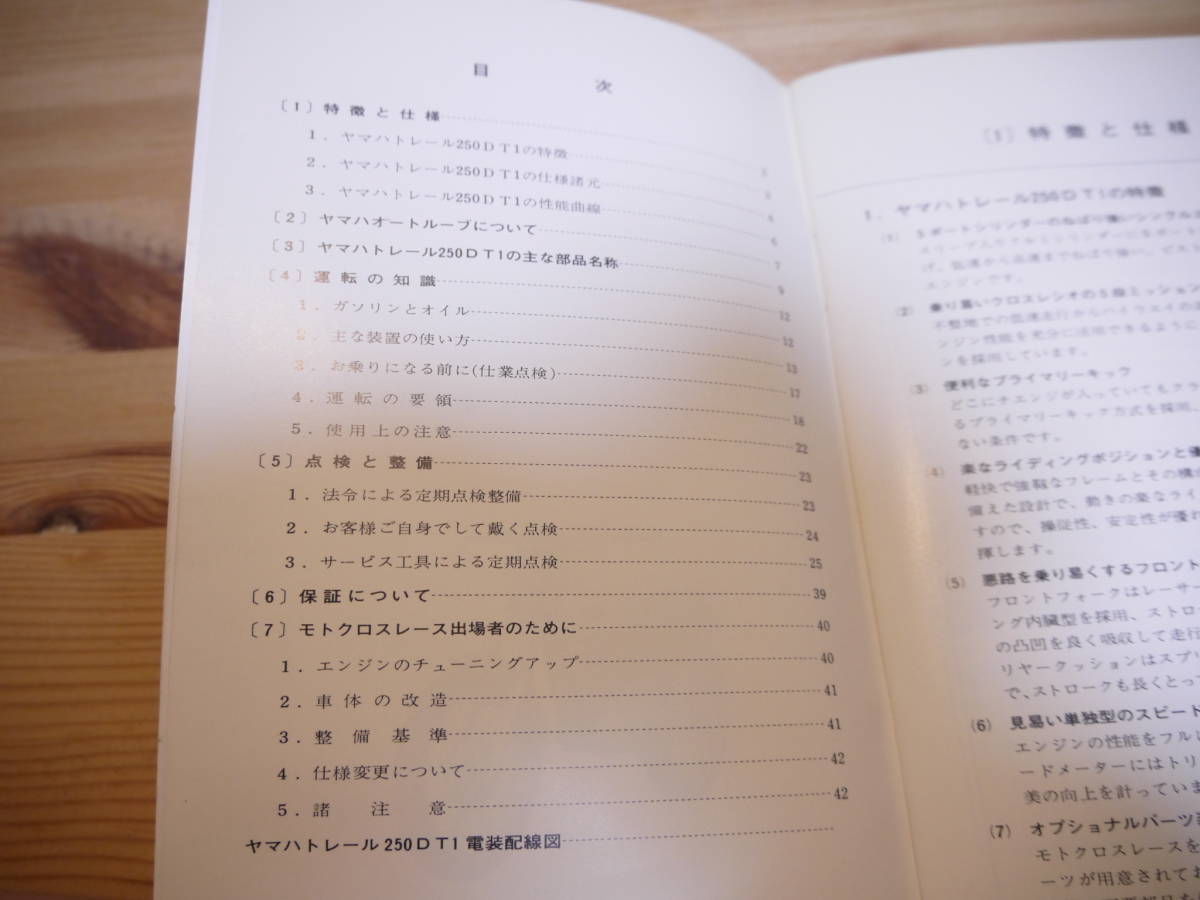 目次
〔1〕特徴と仕様
1．ヤマハトレール250DT1の特徴
2．ヤマハトレール250DT1の仕様諸元
3．ヤマハトレール250DT1の性能曲線
〔2〕ヤマハオートルーブについて 7
〔3〕ヤマハトレール250DT1の主な部品名称 9
〔4〕運転の知識 12
1．ガソリンとオイル 12
2．主な装置の使い方 13
3．お乗りになる前に(仕業点検) 17
4．運転の要領 18
5．使用上の注意 22
〔5〕点検と整備 23
1．法令による定期点検整備 23
2．お客様ご自身でして戴く点検 24
3．サービス工具による定期点検 25
〔6〕保証について 39
〔7〕モトクロスレース出場者のために 40
1．エンジンのチューニングアップ 40
2．車体の改造 41
3．整備基準 41
4．仕様変更について 42
5．諸注意 42
ヤマハトレール250DT1電装配線図
〔1〕特徴と仕様
1．ヤマハトレール250DT1の特徴
(1) 5ポートシリンダーのねばり強いシングル
エンジンです。
(2) 乗り易いクロスレシオの5段ミッション
不整地での低速走行からハイウエイの
ンジン性能を充分に活用できるように
ンを採用しています。
(3) 便利なプライマリーキック
どこにチエンジが入っていてもクラ
るプライマリーキック方式を採用
ない条件です。
(4) 楽なライディングポジションと優
軽快で強靱なフレームとその構
備えた設計で、動きの楽なライ
すので、操従性、安定性が優れ
揮します。
(5) 悪路を乗り易くするフロント
フロントフォークはレーサー
ング内臓型を採用、ストロ
の凸凹を良く吸収して走行
リヤークッションはスプリ
で、ストロークも長くとって
(6) 見易い単独型のスピード
エンジンの性能をフルに
ードメーターにはトリ
美の向上を計っていま
(7) オプショナルパーツ
モトクロスレースを
ーツが用意されてお